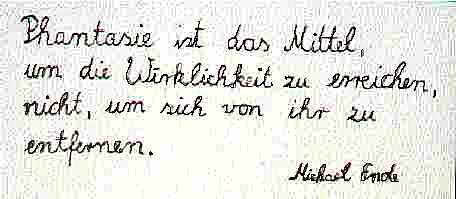 Phantasie ist das Mittel,
um die Wirklichkeit zu erreichen,
nicht, um sich von ihr zu
entfernen.
Michael Ende